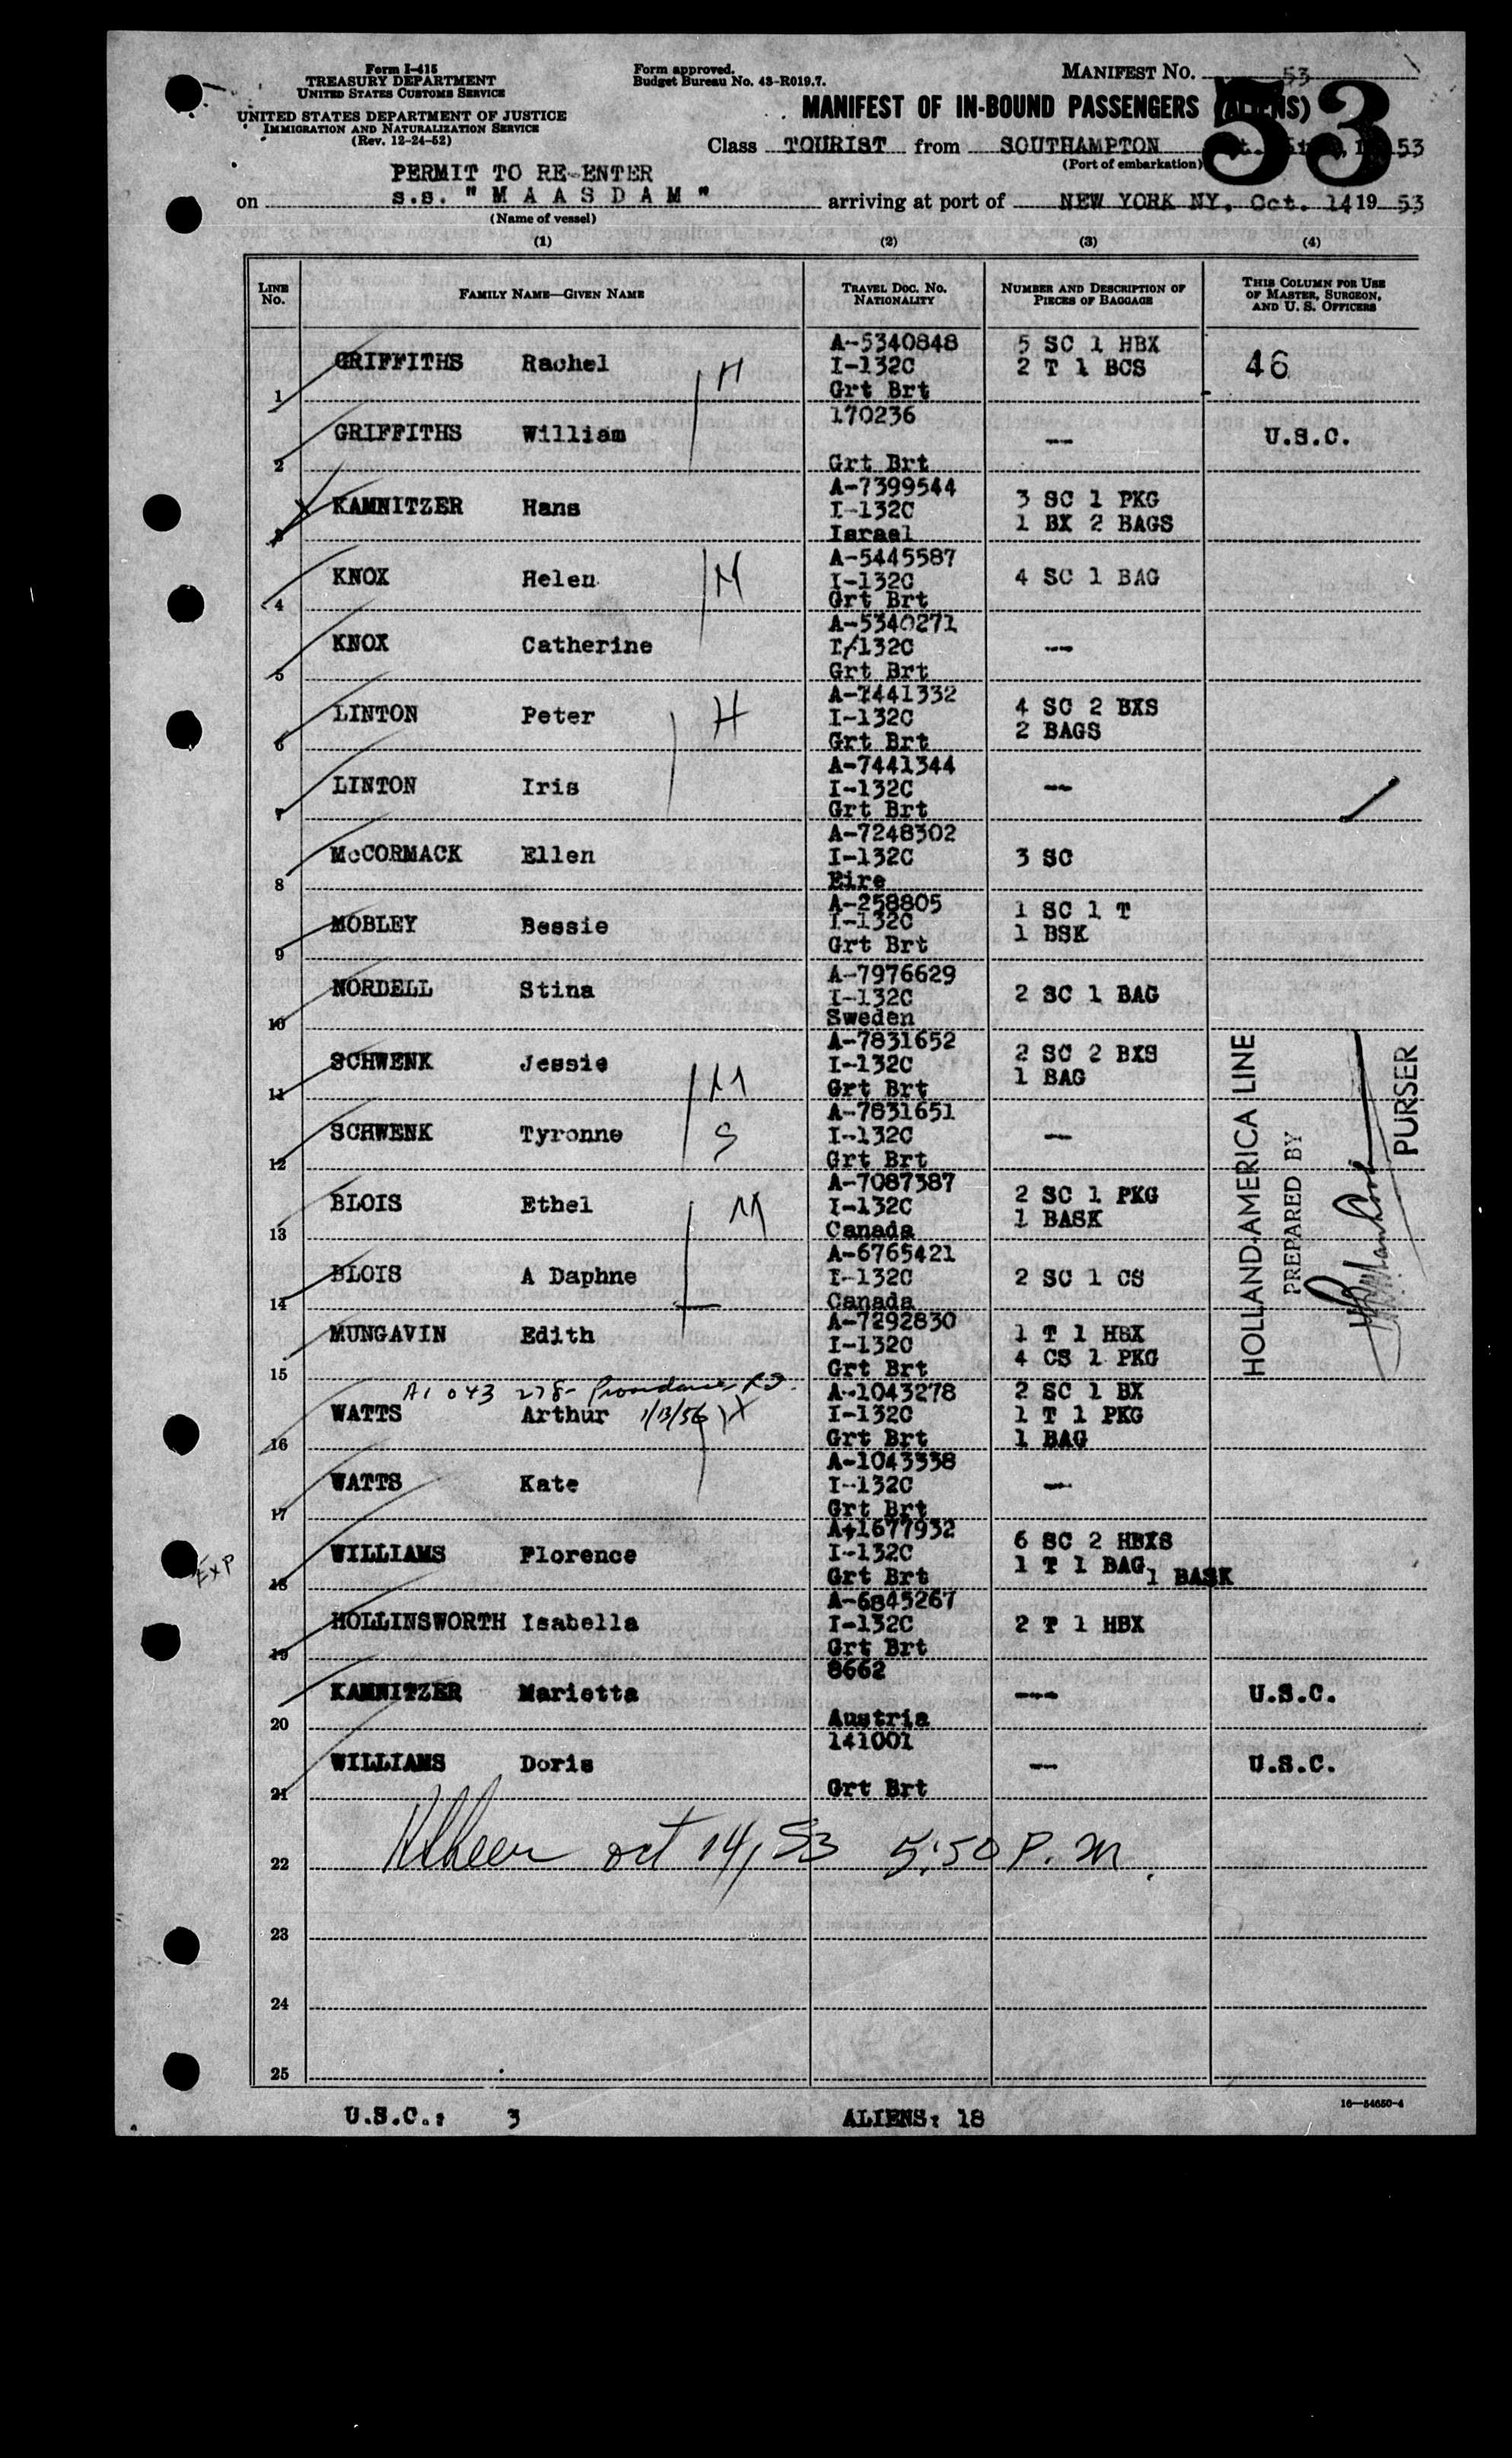 Form I-415
TREASURY DEPARTMENT
UNITED STATES CUSTOMS SERVICE
UNITED STATES DEPARTMENT OF JUSTICE
IMMIGRATION AND NATURALIZATION SERVICE
(Rev. 12-24-52)
Form approved.
Budget Bureau No. 43-R019.7.
MANIFEST No. 53
53
MANIFEST OF IN-BOUND PASSENGERS (ALIENS)
Class TOURIST from SOUTHAMPTON 53
(Port of embarkation)
PERMIT TO RE-ENTER
on s.s. "M A A S D A M" arriving at port of NEW YORK NY, Oct. 14 19 53
(Name of vessel)
(1) (2) (3) (4)
LINE No. FAMILY NAME—GIVEN NAME TRAVEL DOC. NO. NATIONALITY NUMBER AND DESCRIPTION OF PIECES OF BAGGAGE THIS COLUMN FOR USE OF MASTER, SURGEON, AND U. S. OFFICERS
1 GRIFFITHS Rachel H A-5340848 I-132C Grt Brt 5 SC 1 HBX 2 T 1 BCS 46
2 GRIFFITHS William 170236 Grt Brt -- U.S.C.
3 X KAMNITZER Hans A-7399544 I-132C Israel 3 SC 1 PKG 1 BX 2 BAGS
4 KNOX Helen M A-5445587 I-132C Grt Brt 4 SC 1 BAG
5 KNOX Catherine A-5340271 I/132C Grt Brt --
6 LINTON Peter H A-7441332 I-132C Grt Brt 4 SC 2 BXS 2 BAGS
7 LINTON Iris A-7441344 I-132C Grt Brt --
8 McCORMACK Ellen A-7248302 I-132C Eire 3 SC
9 MOBLEY Bessie A-258805 I-132C Grt Brt 1 SC 1 T 1 BSK
10 NORDELL Stina A-7976629 I-132C Sweden 2 SC 1 BAG
11 SCHWENK Jessie M A-7831652 I-132C Grt Brt 2 SC 2 BXS 1 BAG
12 SCHWENK Tyronne S A-7831651 I-132C Grt Brt --
13 BLOIS Ethel M A-7087387 I-132C Canada 2 SC 1 PKG 1 BASK
14 BLOIS A Daphne A-6765421 I-132C Canada 2 SC 1 CS
15 MUNGAVIN Edith A-7292830 I-132C Grt Brt 1 T 1 HBX 4 CS 1 PKG
A1 043 278 - Providence, RI.
16 WATTS Arthur 1/13/56 X A-1043278 I-132C Grt Brt 2 SC 1 BX 1 T 1 PKG 1 BAG
17 WATTS Kate A-1043338 I-132C Grt Brt --
Exp 18 WILLIAMS Florence A+1677932 I-132C Grt Brt 6 SC 2 HBXS 1 T 1 BAG 1 BASK
19 HOLLINSWORTH Isabella A-6845267 I-132C Grt Brt 2 T 1 HBX
20 KAMNITZER Marietta 8662 Austria --- U.S.C.
21 WILLIAMS Doris 141001 Grt Brt -- U.S.C.
22 oct 14, 53 5:50 P. M.
23
24
25
HOLLAND-AMERICA LINE
PREPARED BY
PURSER
16—54650-4
U.S.C.: 3 ALIENS: 18